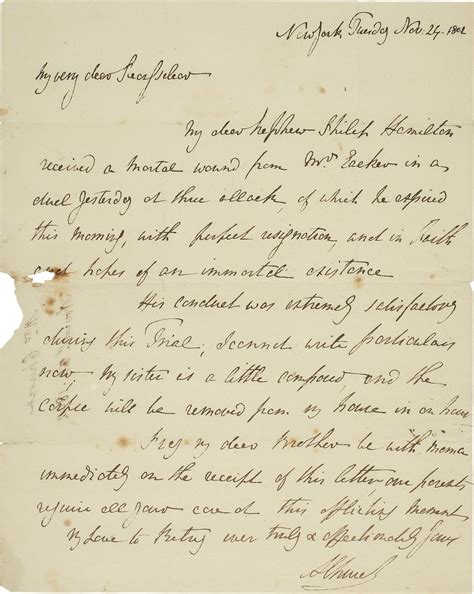 New York Tuesday Nov. 24. 1801
My very dear
My dear Nephew Philip Hamilton
received a mortal wound from Mr. Eacker in a
duel Yesterday at three oClock, of which he expired
this morning, with perfect resignation, and in Faith
and hopes of an immortal existence
His conduct was extremely satisfactory
during this Trial, I cannot write particulars
now, My sister is a little composed, and the
corpse will be removed from my house in an hour
Pray my dear Brother be with Mama
immediately on the receipt of this letter, our parents
require all your care at this afflicting moment
My Love to Betsey ever truly & affectionately Yours